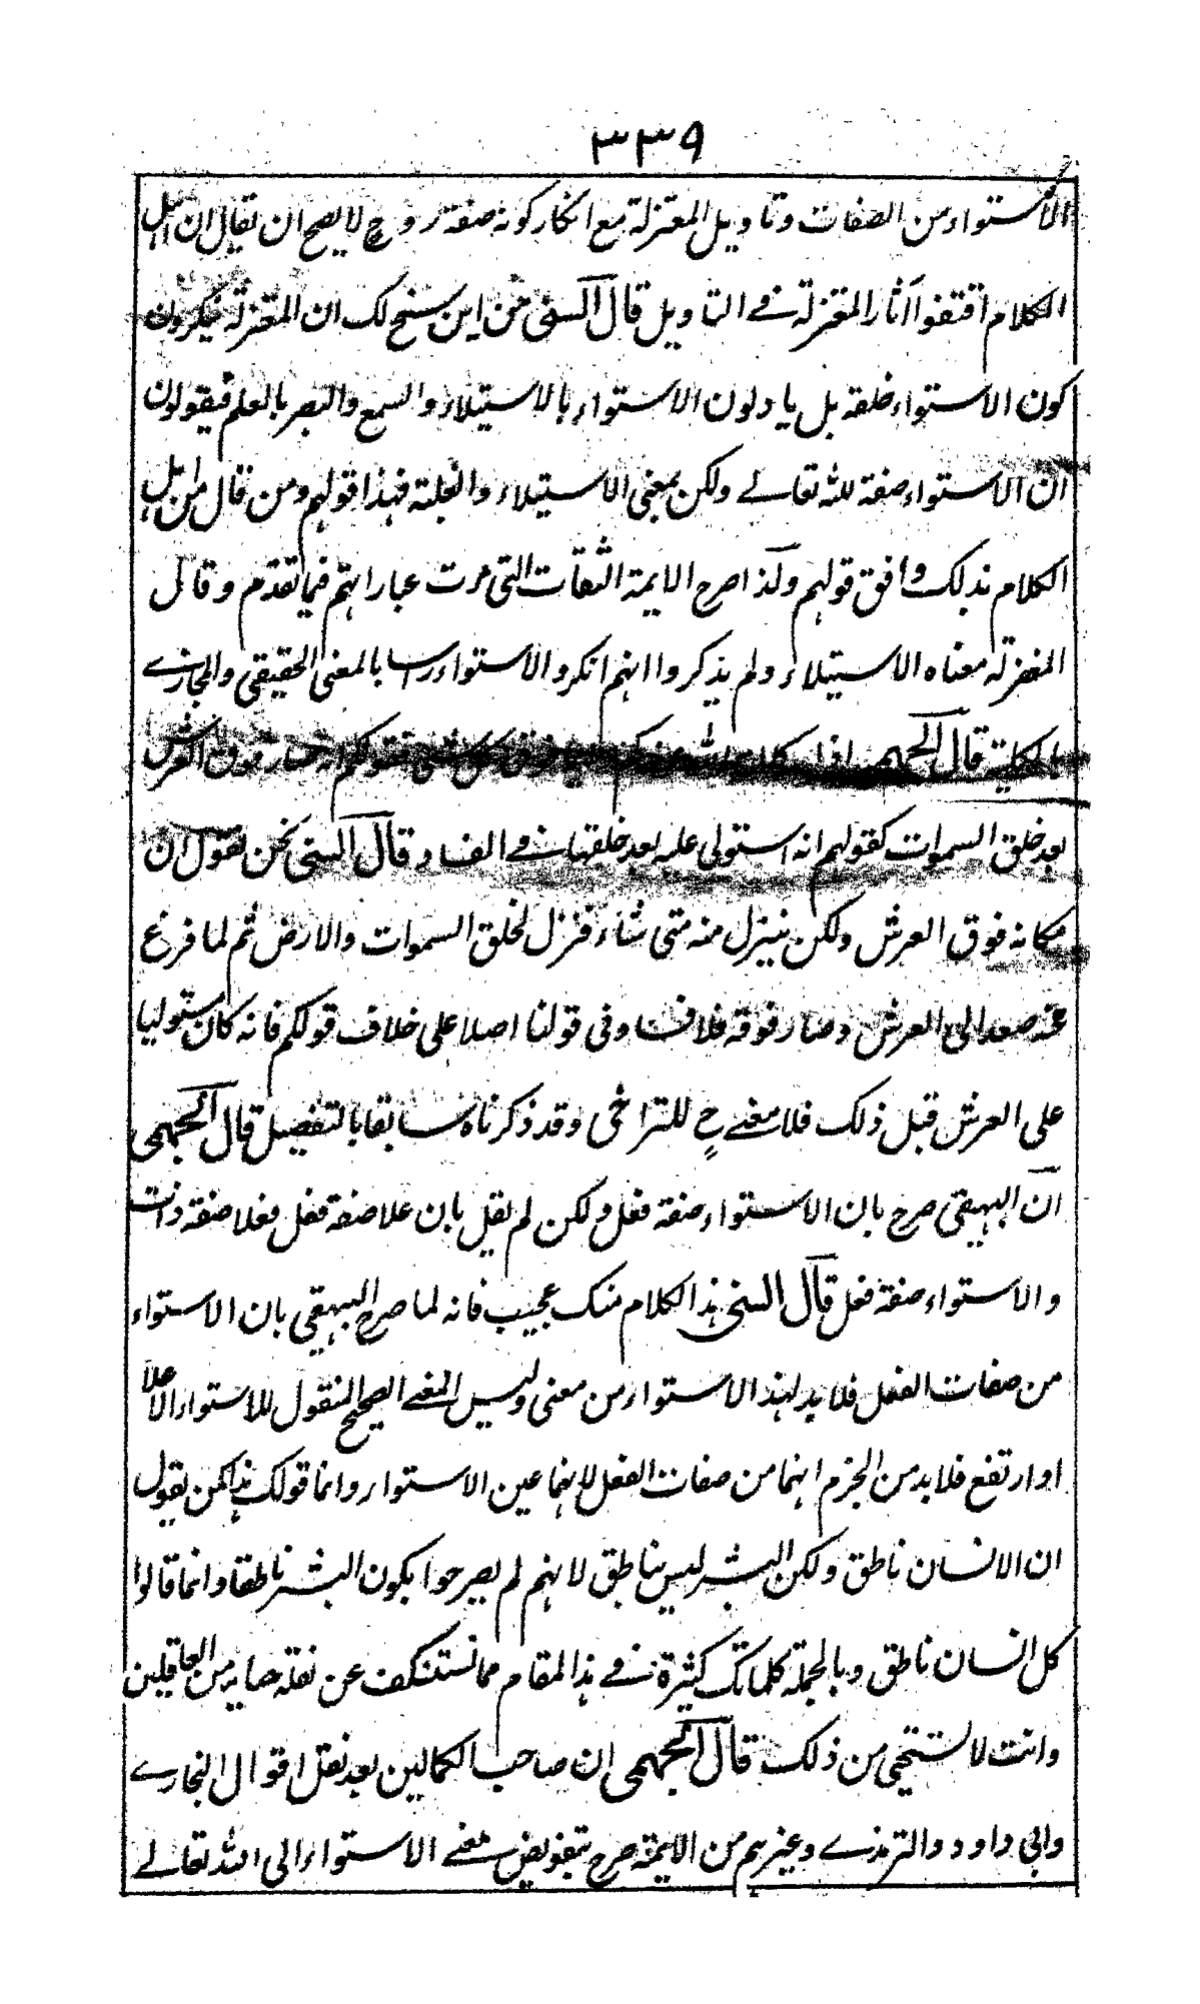 ٣٣٩
الاستواء من الصفات وتاويل المعتزلة مع انكار كونه صفة وح لا يصح ان يقال ان اهل
الكلام اقتفوا آثار المعتزلة في التاويل قال السنى من اين سنح لك ان المعتزلة ينكرون
كون الاستواء خلقه بل ياولون الاستواء بالاستيلاء والسمع والبصر بالعلم فيقولون
ان الاستواء صفة لله تعالى ولكن بمعنى الاستيلاء والغلبة فهذا قولهم ومن قال من اهل
الكلام بذلك وافق قولهم ولذا صرح الايمة الثقات التى مرت عباراتهم فيما تقدم وقال
المعتزلة معناه الاستيلاء ولم يذكروا انهم انكروا الاستواء راسا بالمعنى الحقيقى والمجازى
بالكلية قال الجهمى اذا كان الله فوق كل شئ فقولكم انه صار فوق العرش
بعد خلق السموات كقولهم انه استولى عليه بعد خلقها في الفساد قال السنى نحن نقول ان
مكانه فوق العرش ولكن ينزل منه متى شاء فنزل لخلق السموات والارض ثم لما فرغ
عنه صعد الى العرش وصار فوقه فلا فساد فى قولنا اصلا على خلاف قولكم فانه كان مستوليا
على العرش قبل ذلك فلا معنى ح للتراخى وقد ذكرناه سابقا بالتفصيل قال الجهمى
ان البيهقى صرح بان الاستواء صفة فعل ولكن لم يقل بان علا صفة فعل فعلا صفة ذات
والاستواء صفة فعل قال السنى هذا الكلام منك عجيب فانه لما صرح البيهقى بان الاستواء
من صفات الفعل فلا بد لهذا الاستواء من معنى وليس المعنى الصحيح المنقول للاستواء الا علا
او ارتفع فلا بد من الجزم انهما من صفات الفعل لانهما عين الاستواء وانما قولك هذا كمن يقول
ان الانسان ناطق ولكن البشر ليس بناطق لانهم لم يصرحوا بكون البشر ناطقا وانما قالوا
كل انسان ناطق وبالجملة كلماتك كثيرة في هذا المقام مما تستنكف عن نقله من العاقلين
وانت لا تستحيى من ذلك قال الجهمى ان صاحب الكمالين بعد نقل اقوال البخارى
وابى داود والترمذى وغيرهم من الايمة صرح بتفويض معنى الاستواء الى الله تعالى